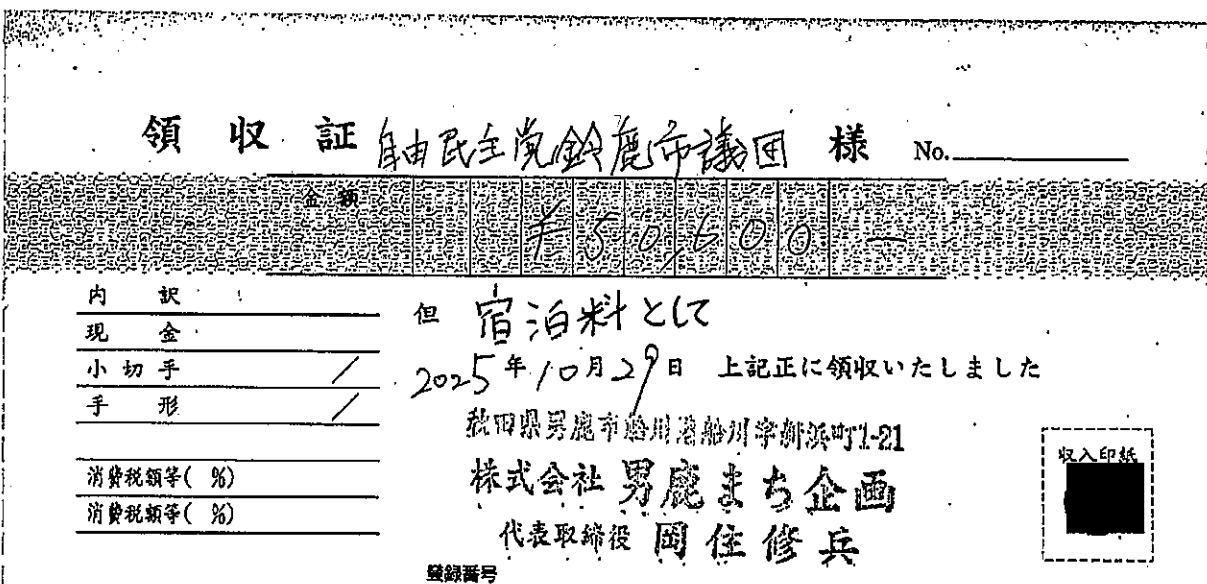 領収証 自由民主党鈴鹿市議団 様 No.
金額
¥50,600—
内訳
現金
小切手 /
手形 /
消費税額等( %)
消費税額等( %)
但 宿泊料として
2025年10月29日 上記正に領収いたしました
秋田県男鹿市船川港船川字新浜町1-21
株式会社 男鹿まち企画
代表取締役 岡住修兵
登録番号
収入印紙